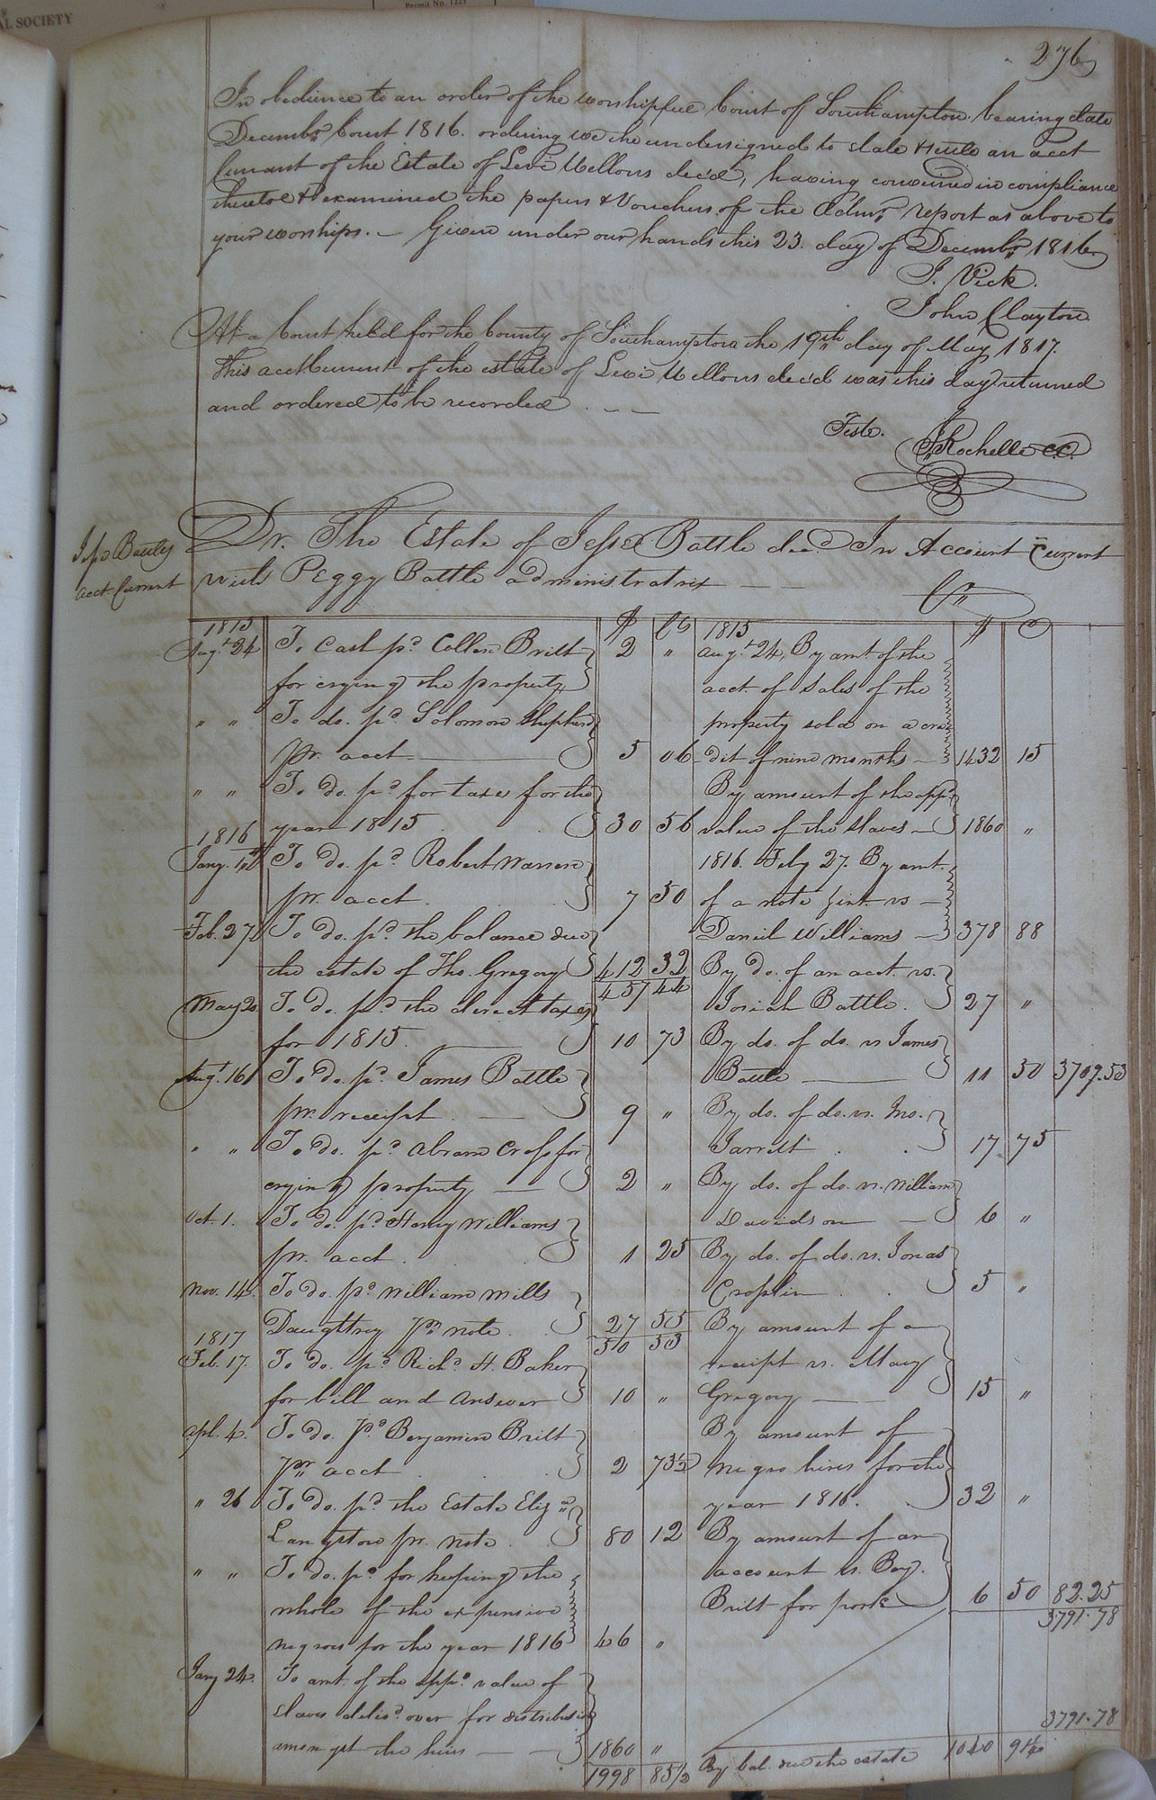 AL SOCIETY
Permit No. 1221
276
In obedience to an order of the worshipfull Court of Southampton bearing date
Decembr Court 1816. ordering we the undersigned to state & settle an acct
Currant of the Estate of Levi Mellons decd, having convened in compliance
thereto & examined the papers & Vouchers of the Admr. report as above to
your worships. — Given under our hands this 23. day of Decembr 1816
J. Vick.
John Clayton
At a Court held for the County of Southampton the 19th day of May 1817.
This acct Current of the estate of Levi Mellons decd was this day returned
and ordered to be recorded
Teste.
J Rochelle CC.
Dr. The Estate of Jesse Battle decd In Account Current
with Peggy Battle administratrix
Cr
acct Current
$ Cts
1815
Augt 24 To Cash pd Collin Britt
for crying the property 2 "
" " To do. pd Solomon Shepherd
pr. acct 5 06
" " To do. pd for taxes for the
year 1815 30 56
1816
Jany. To do. pd Robert Warren
pr. acct 7 50
Feb. 27 To do. pd the balance due
the estate of Tho. Gregory 412 32
457 44
May 20 To do. pd the direct taxes
for 1815 10 73
Augt. 16 To do. pd James Battle
pr. receipt 9 "
" " To do. pd Abram Cross for
crying property 2 "
Oct. 1. To do. pd Henry Williams
pr. acct 1 25
Nov. 14. To do. pd William Mills
Daughtrey pr note 27 55
50 53
1817
Feb. 17. To do. pd Richd H. Baker
for bill and answer 10 "
apl. 4. To do. pd Benjamin Britt
pr acct 2 73½
" 26 To do. pd the Estate Eliz
Langston pr. note 80 12
" " To do. pd for keeping the
whole of the expensive
negroes for the year 1816 46 "
Jany 24. To amt. of the appd value of
slaves delivd over for distribution
amongst the heirs 1860 "
1998 85½
$ C
1815
Augt. 24, By amt of the
acct. of sales of the
property sold on a cre
dit of nine months 1432 15
By amount of the appd
value of the slaves 1860 "
1816. Feby 27. By amt.
of a note & int. vs
Daniel Williams 378 88
By do. of an acct. vs.
Josiah Battle. 27 "
By do. of do. vs James
Battle 11 50 3709.53
By do. of do. vs. Jno.
Jarrett 17 75
By do. of do. vs. William
Davidson 6 "
By do. of do. vs. Jonas
5 "
By amount of a
receipt vs. Mary
Gregory 15 "
By amount of
negro hires for the
year 1816. 32 "
By amount of an
account vs. Benj.
Britt for pork 6 50 82.25
3791.78
3791.78
By bal. due the estate 1040